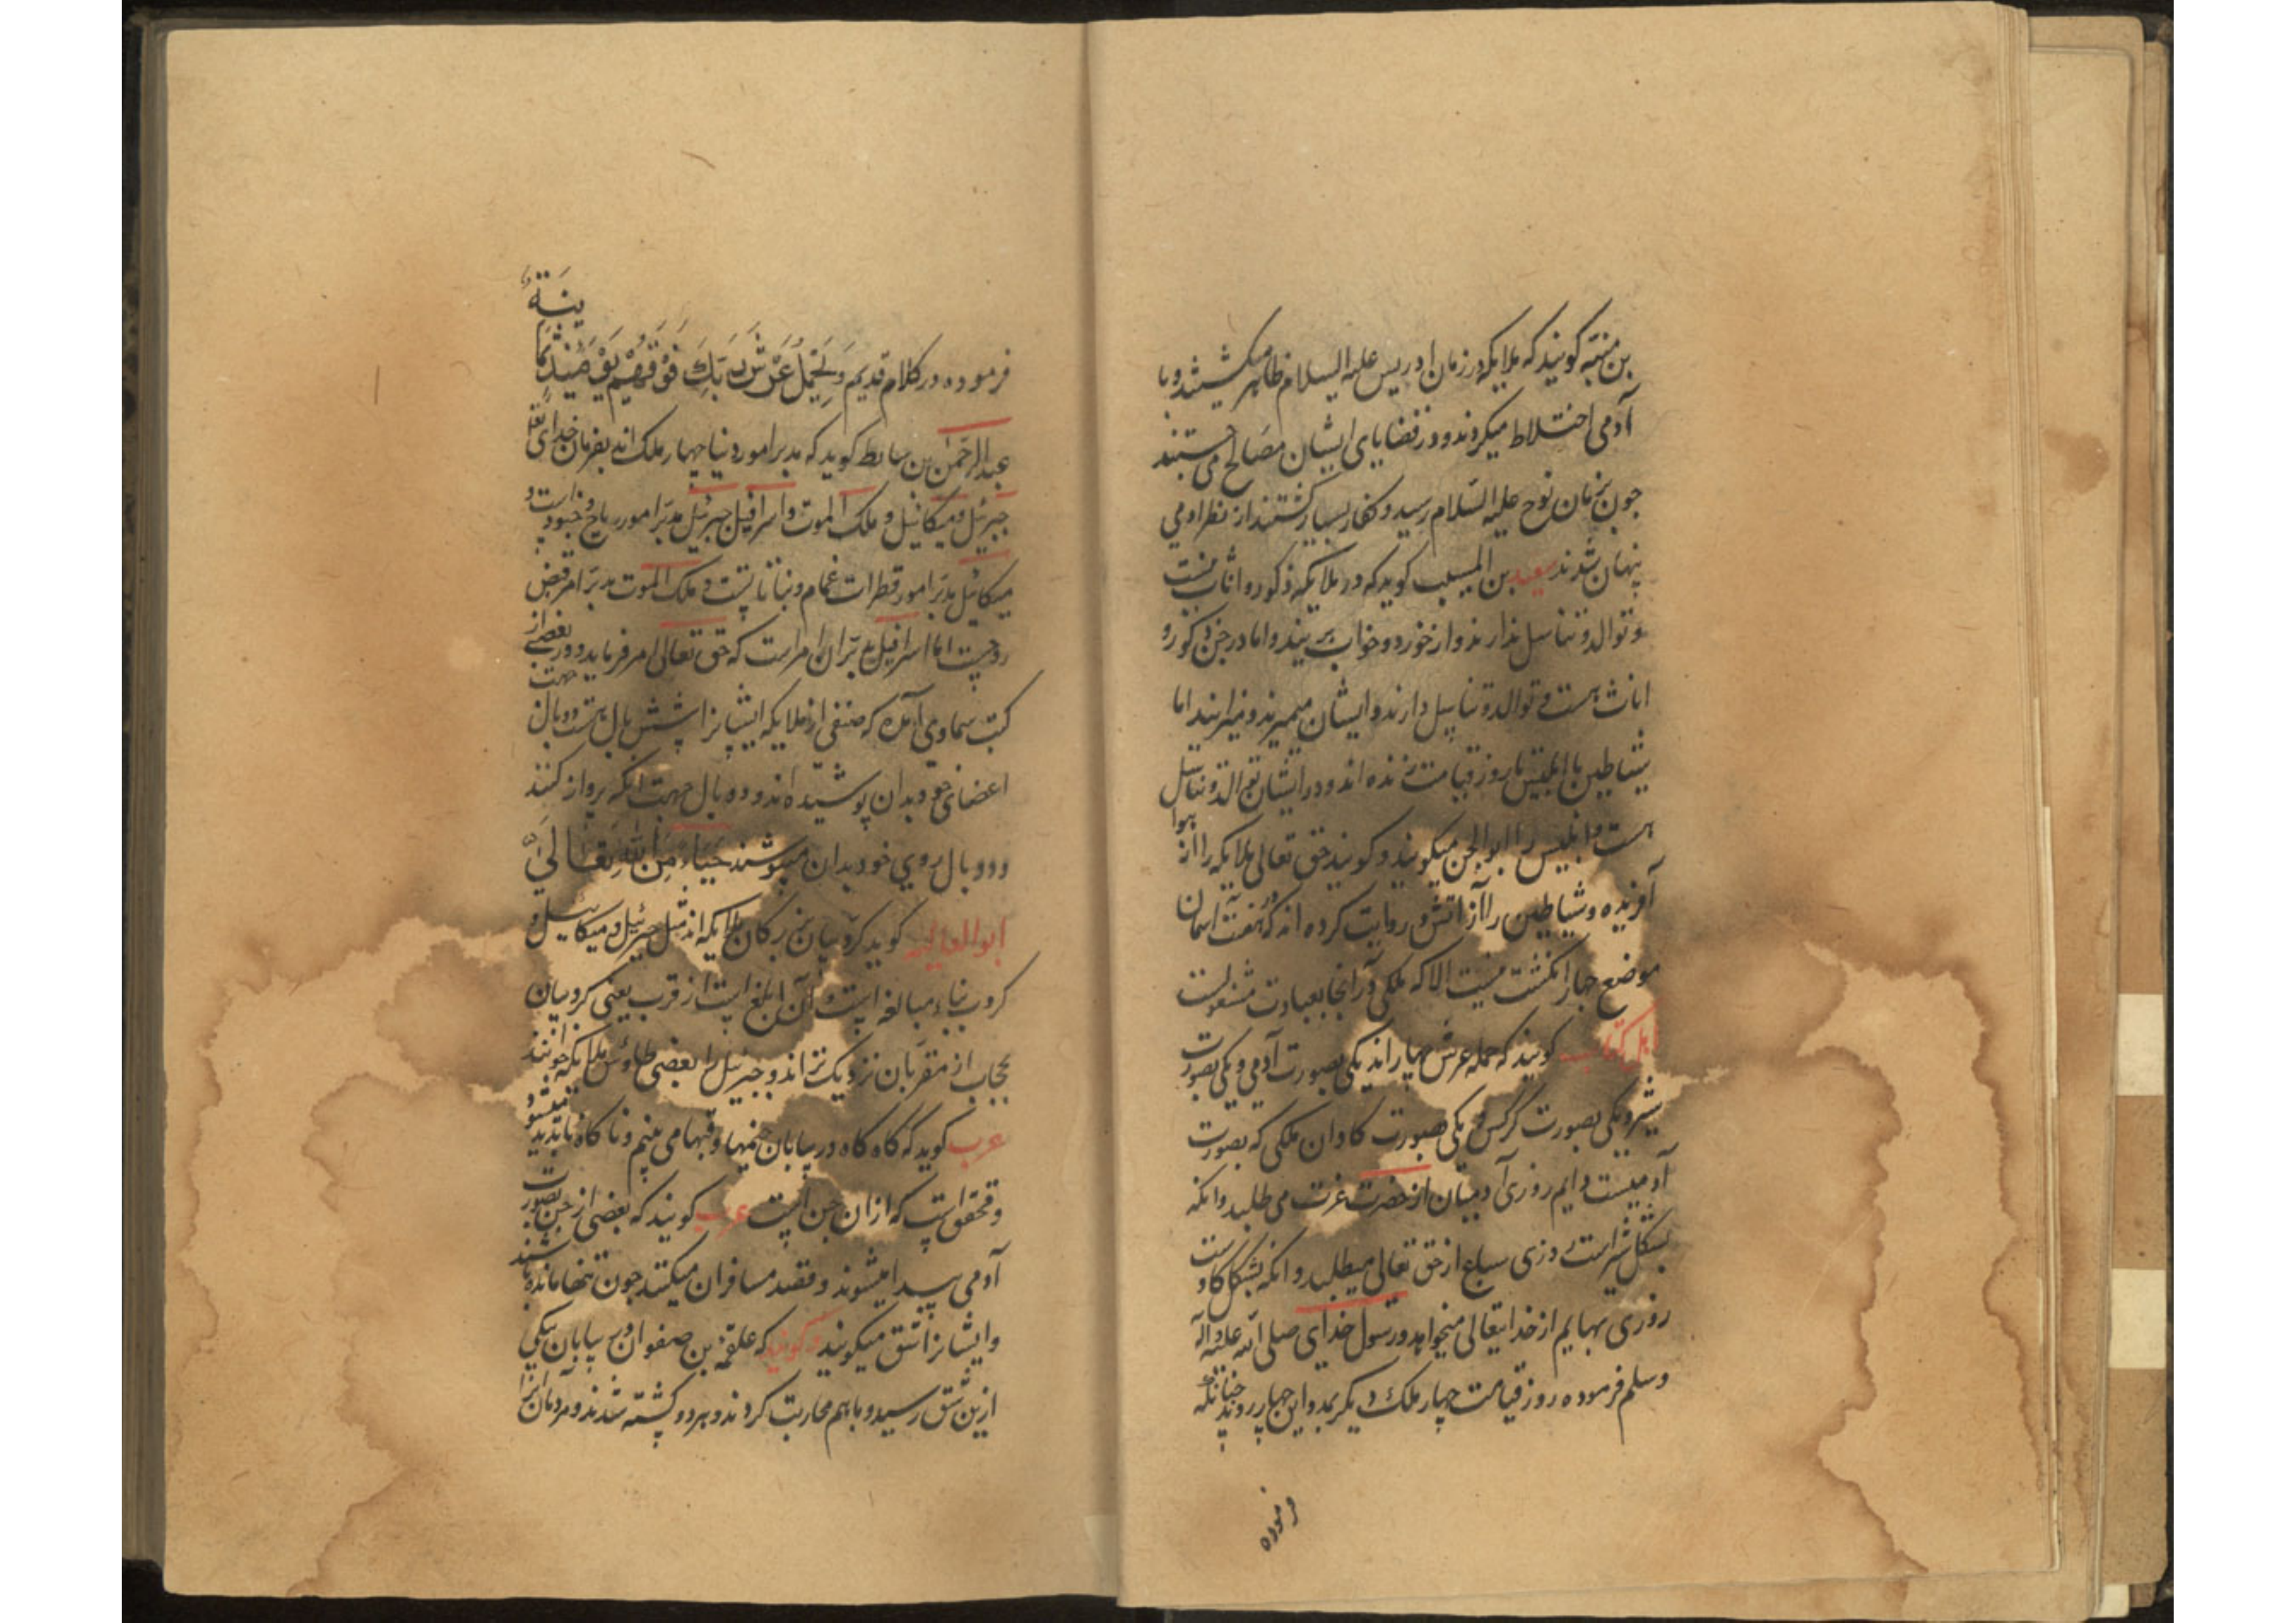 بن منبه کویند که ملایکه در زمان ادریس علیه السلام ظاهر میکشتند و با
آدمی اختلاط میکردند و در قضایای ایشان مصالح می جستند
جون بزمان نوح علیه السلام رسید و کفار بسیار کشتند از نظر ادمی
پنهان شدند سعید بن المسیب کوید که در ملایکه ذکور و اناث نیست
و توالد و تناسل ندارند و از خورد و خواب بریند و اما در جن ذکور و
اناث هست و توالد و تناسل دارند و ایشان میمیرند و نیز ایند اما
شیاطین با ابلیس تا روز قیامت زنده اند و در ایشان توالد و تناسل
هست و ابلیس را ابو الجن میکویند و کویند حق تعالی ملایکه را از هوا
آفریده و شیاطین را از آتش و روایت کرده اند که در هفت اسمان
موضع چهار انکشت نیست الا که ملکی در آنجا بعبادت مشغولست
اهل کتاب کویند که حمله عرش چهار اند یکی بصورت آدمی و یکی بصورت
شیر و یکی بصورت کرکس و یکی بصورت کاو ان ملکی که بصورت
آدمیست دایم روزی آدمیان از حضرت عزت می طلبد و انکه
بشکل شیر است روزی سباع از حق تعالی میطلبد و انکه بشکل کاو است
روزی بهایم از خدایتعالی میخواهد و رسول خدای صلی الله علیه و آله
وسلم فرموده روز قیامت چهار ملک دیکر بمدد این چهار روند چنانکه
فرموده
فرموده در کلام قدیم وَيَحْمِلُ عَرْشَ رَبِّكَ فَوْقَهُمْ يَوْمَئِذٍ ثَمَانِيَةٌ
عبد الرحمن بن سابط کوید که مدبر امور دنیا چهار ملک اند بفرمان خدای تعالی
جبرئیل و میکائیل و ملک الموت و اسرافیل جبرئیل مدبر امور ریاح و جنود است و
میکائیل مدبر امور قطرات غمام و نباتاتست و ملک الموت مدبر امر قبض
روحست اما اسرافیل مدبر ان امر است که حق تعالی امر فرماید و در بعضی از
کتب سماوی آمده که صنفی از ملایکه ایشانرا شش بال هست دو بال جهت ان
اعضای خود بدان پوشیده اند و دو بال جهت انکه پرواز کنند
و دو بال روی خود بدان میپوشند حَيَاءً مِنَ اللهِ تَعَالَى
ابو العالیه کوید کروبیان بزرکان ملایکه اند مثل جبرئیل و میکائیل و
کروب بناء مبالغه است و آن ابلغ است از قرب یعنی کروبیان
بحجاب از مقربان نزدیک تر اند و جبرئیل را بعضی طاوس ملایکه خوانند
عرب کوید که کاه کاه در بیابان خیمها و قبها می بینم و ناکاه ناپدید میشود
و محقق است که از ان جن است عرب کویند که بعضی از جن بصورت
آدمی پیدا میشوند و قصد مسافران میکنند جون تنها مانده باشند
و ایشانرا شق میکویند و کویند که علقمة بن صفوان در بیابان بیکی
ازین شق رسید و با هم محاربت کردند و هر دو کشته شدند و مردمان انرا